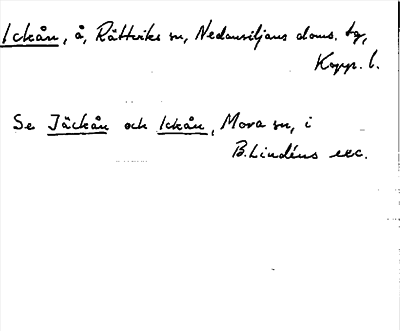 Ickån, å, Rättviks sn, Nedansiljans doms. tg,
Kopp. l.
Se Jäckån och Ickån, Mora sn, i
B. Lindéns exc.